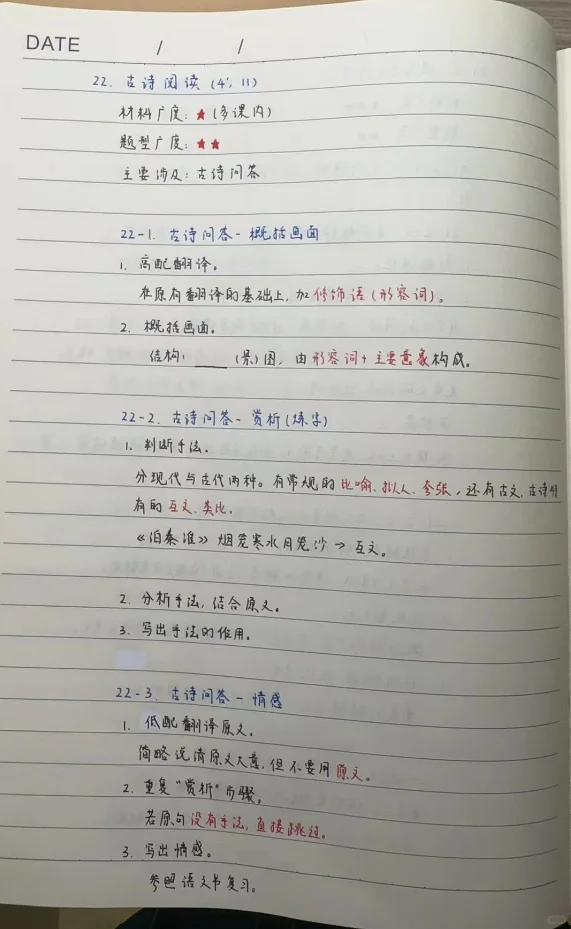 DATE / /
22. 古诗阅读 (4', 11)
材料广度: ★ (多课内)
题型广度: ★★
主要涉及: 古诗问答
22-1. 古诗问答 - 概括画面
1. 高配翻译。
在原有翻译的基础上, 加修饰语 (形容词)。
2. 概括画面。
结构: ___ (景) 图, 由形容词+主要意象构成。
22-2. 古诗问答 - 赏析 (炼字)
1. 判断手法。
分现代与古代两种。有常规的比喻、拟人、夸张, 还有古文、古诗特
有的互文、类比。
《泊秦淮》烟笼寒水月笼沙 → 互文。
2. 分析手法, 结合原文。
3. 写出手法的作用。
22-3. 古诗问答 - 情感
1. 低配翻译原文。
简略说清原文大意, 但不要用原文。
2. 重复"赏析"步骤。
若原句没有手法, 直接跳过。
3. 写出情感。
参照语文书复习。